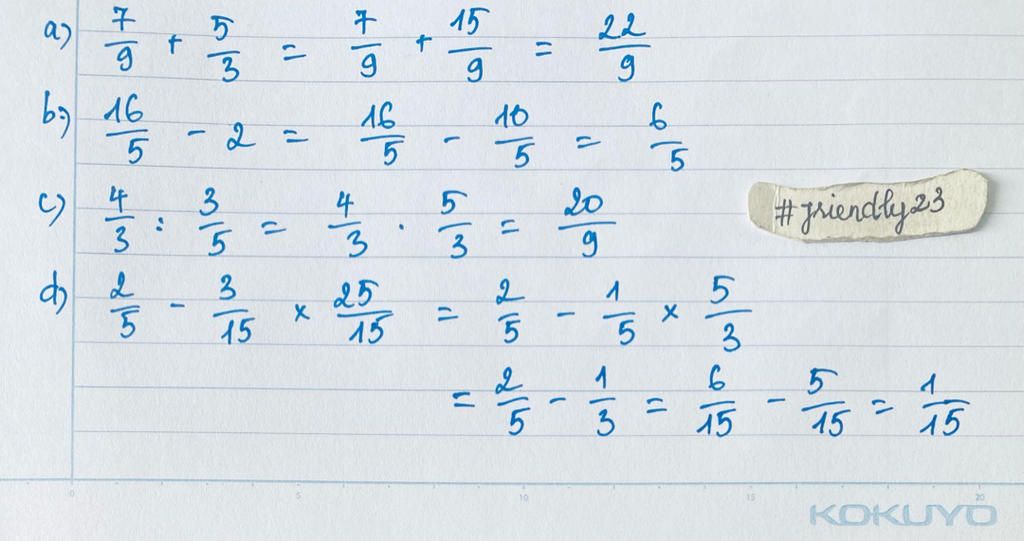 a) 7/9 + 5/3 = 7/9 + 15/9 = 22/9
b) 16/5 - 2 = 16/5 - 10/5 = 6/5
c) 4/3 : 3/5 = 4/3 . 5/3 = 20/9
#friendly23
d) 2/5 - 3/15 × 25/15 = 2/5 - 1/5 × 5/3
= 2/5 - 1/3 = 6/15 - 5/15 = 1/15
0 5 10 15 20
KOKUYO